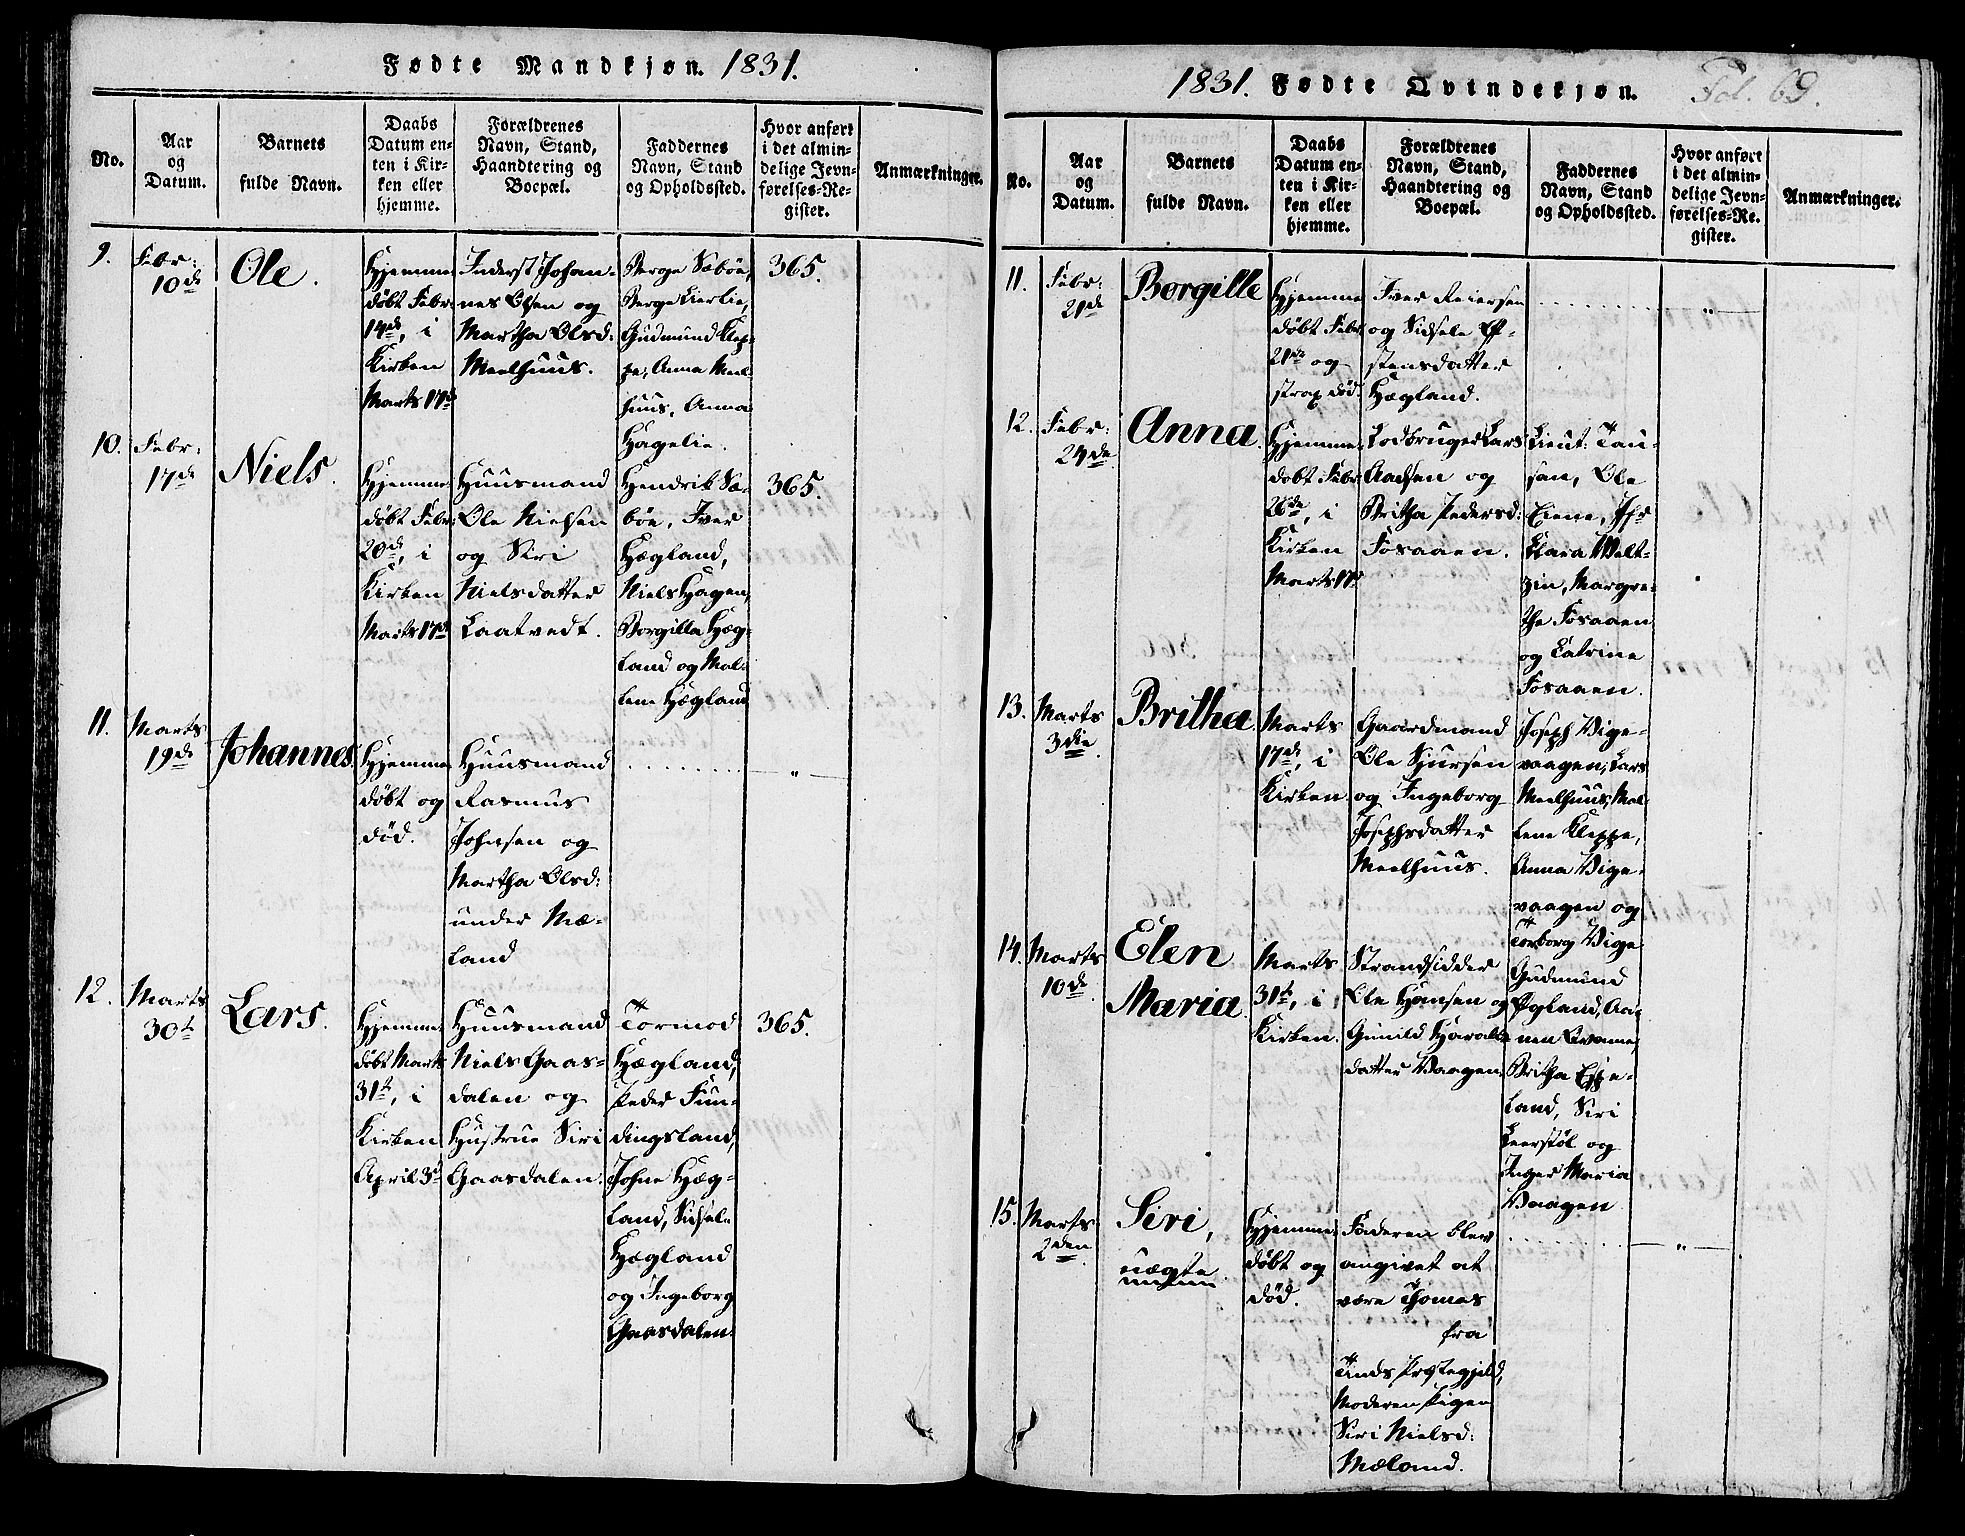 Fødte Mandkjøn. 1831.
No.
Aar
og
Datum.
Barnets
fulde Navn.
Daabs
Datum en-
ten i Kir-
ken eller
hjemme.
Forældrenes
Navn, Stand,
Haandtering og
Boepæl.
Faddernes
Navn, Stand
og Opholdssted.
Hvor anført
i det almin-
delige Jevn-
førelses-Re-
gister.
Anmærkninger.
9.
Febr:
10de
Ole.
Hjemme
døbt Febr:
14de, i
Kirken
Marts 17de
Inderst Johan-
nes Olsen og
Martha Olsd:
Meelhuus.
Børge Sæbøe,
Børge Lierlie,
Gudmund Klep-
pe, Anna Meel-
huus, Anna
Hagelie.
365.
10.
Febr:
17de
Niels.
Hjemme
døbt Febr:
20de, i
Kirken
Marts 17de
Huusmand
Ole Nielsen
og Siri
Nielsdatter
Laatvedt.
Hendrik Sæ-
bøe, Iver
Hægland,
Niels Hagen,
Borgilla Hæg-
land og Mal-
lene Hægland
365.
11.
Marts
19de
Johannes.
Hjemme
døbt og
død.
Huusmand
Rasmus
Johnsen og
Martha Olsd:
under Mæ-
land
"
12.
Marts
30te
Lars.
Hjemme-
døbt Marts
31te, i
Kirken
April 3de
Huusmand
Niels Gaas-
dalen og
Hustrue Siri
Gaasdalen.
Tormod
Hægland,
Peder Fun-
dingsland,
Johne Hæg-
land, Sidsele
Hægland
og Ingeborg
Gaasdalen.
365.
1831. Fødte Qvindekjøn.
Fol. 69.
No.
Aar
og
Datum.
Barnets
fulde Navn.
Daabs
Datum en-
ten i Kir-
ken eller
hjemme.
Forældrenes
Navn, Stand,
Haandtering og
Boepæl.
Faddernes
Navn, Stand
og Opholdssted.
Hvor anført
i det almin-
delige Jevn-
førelses-Re-
gister.
Anmærkninger.
11.
Febr:
21de
Borgille
Hjemme
døbt Febr:
21de og
strax død.
Iver Reiersen
og Sidsele
stensdatter
Hægland.
"
12.
Febr:
24de
Anna.
Hjemme-
døbt Febr:
26de, i
Kirken
Marts 17de
Lodbruger Lars
Aadsen og
Britha Pedersd:
Fosaaen.
Lieut: Tau-
san, Ole
Eiene, Jfr
Clara Welt-
zin, Margre-
the Fosaaen
og Catrine
Fosaaen.
13.
Marts
3die
Britha.
Marts
17de, i
Kirken.
Gaardmand
Ole Sjursen
og Ingeborg
Josephsdatter
Meelhuus.
Joseph Vige-
vaagen, Lars
Meelhuus, Mal-
lene Kleppe,
Anna Vige-
vaagen og
Torborg Vige
14.
Marts
10de
Elen
Maria.
Marts
31te, i
Kirken.
Strandsidder
Ole Hansen og
Gunild Haralds-
datter Vaagen.
Gudmund
Øgland, Aa-
nen Qvame,
Britha Espe-
land, Siri
Leerstøl og
Inger Maria
Vaagen
15.
Marts
2den
Siri,
uægte.
Hjemme-
døbt og
død.
Faderen blev
angivet at
være Thomas
fra
Tinds Præstegjeld,
Moderen Pigen
Siri Nielsd:
Mæland.
"